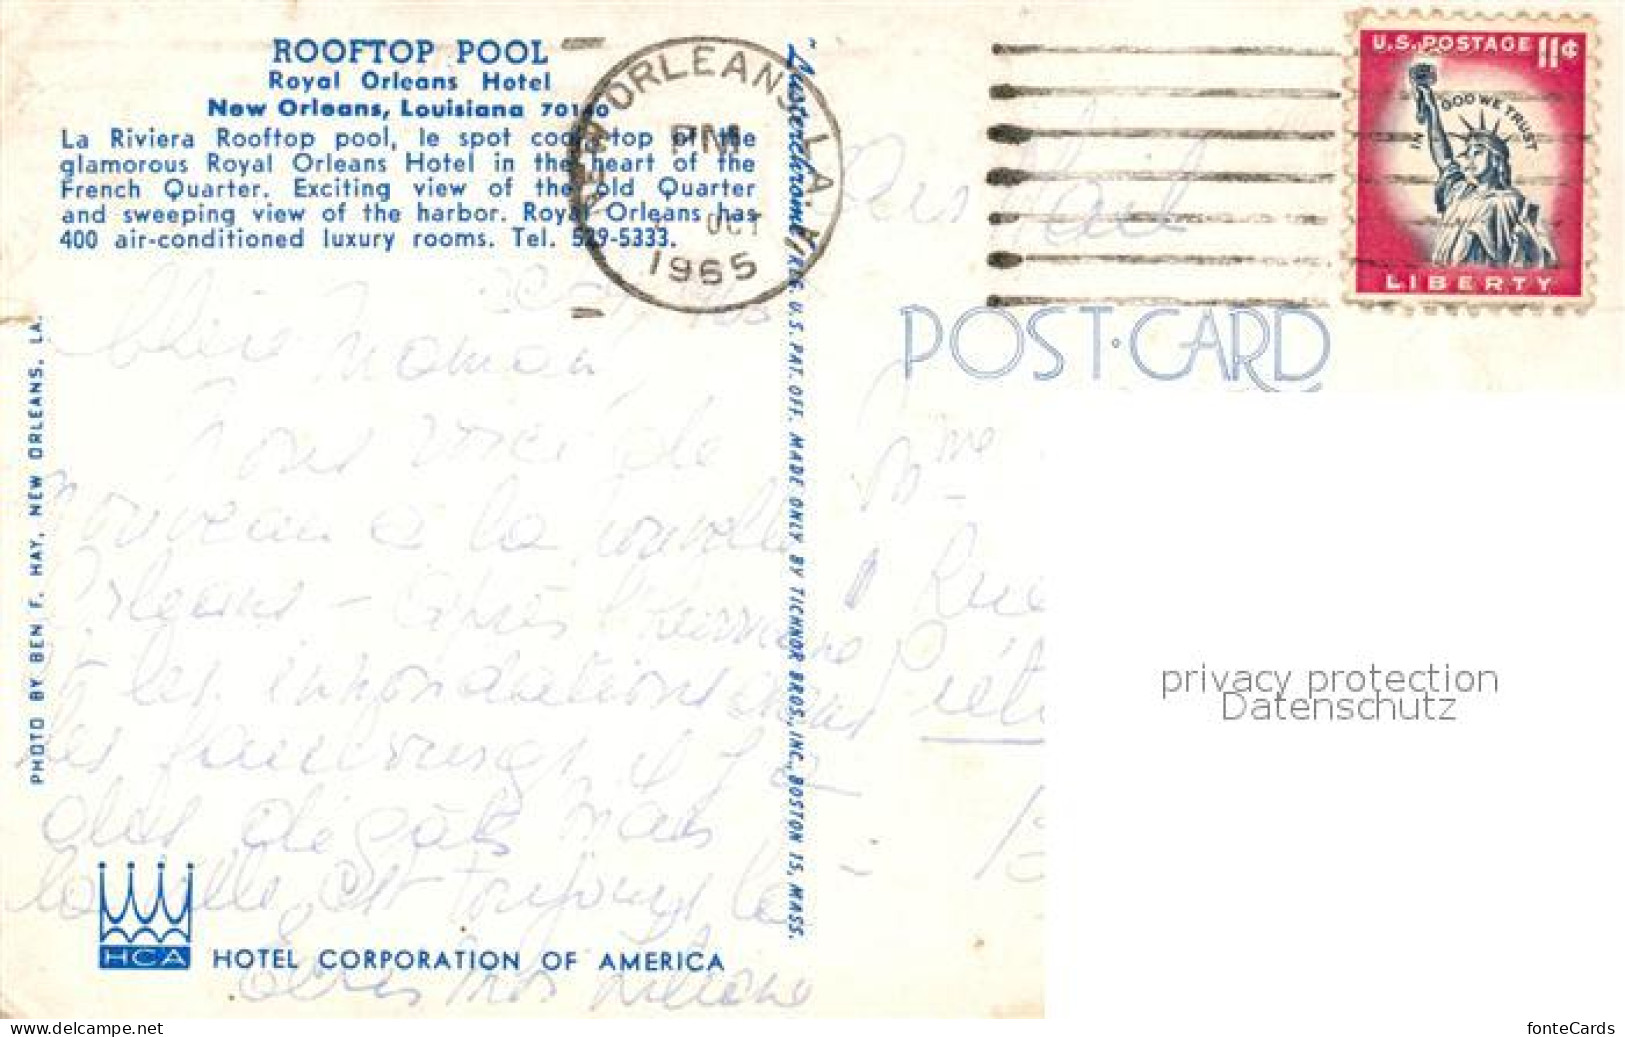 ROOFTOP POOL
Royal Orleans Hotel
New Orleans, Louisiana 70140
La Riviera Rooftop pool, le spot cool top of the
glamorous Royal Orleans Hotel in the heart of the
French Quarter. Exciting view of the old Quarter
and sweeping view of the harbor. Royal Orleans has
400 air-conditioned luxury rooms. Tel. 529-5333.
NEW ORLEANS, LA.
PM
OCT
1965
U.S. POSTAGE 11¢
IN GOD WE TRUST
LIBERTY
POST CARD
Chère Maman
Nous voici de
nouveau à la nouvelle
Orleans - après l'hurricane
et les innondations dans
les faubourgs il y a
des dégâts mais
la ville est toujours la
Mme
Rue
PHOTO BY BEN F. HAY, NEW ORLEANS, LA.
"Lusterchrome" REG. U.S. PAT. OFF. MADE ONLY BY TICHNOR BROS., INC., BOSTON 15, MASS.
HCA HOTEL CORPORATION OF AMERICA
privacy protection
Datenschutz
www.delcampe.net
fonteCards